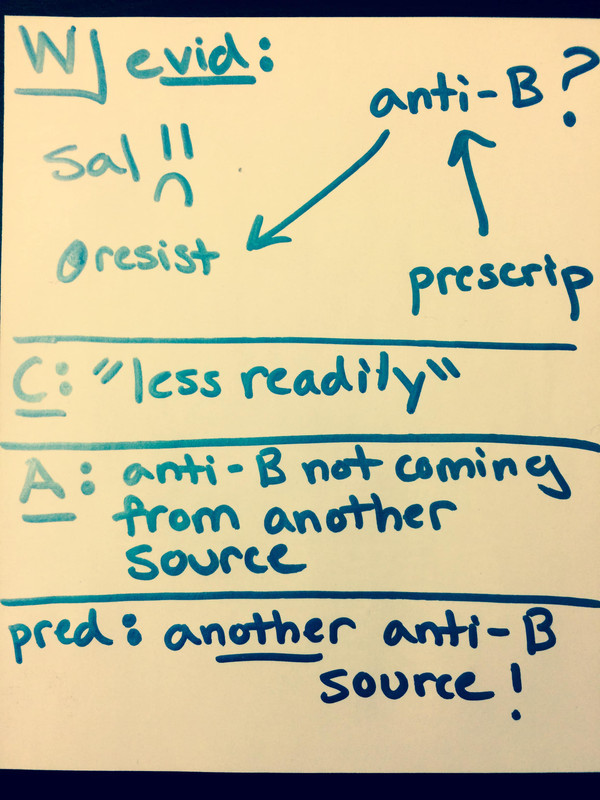 W] evid:
anti-B?
sal
resist
prescrip
C: "less readily"
A: anti-B not coming
from another
source
pred: another anti-B
source!